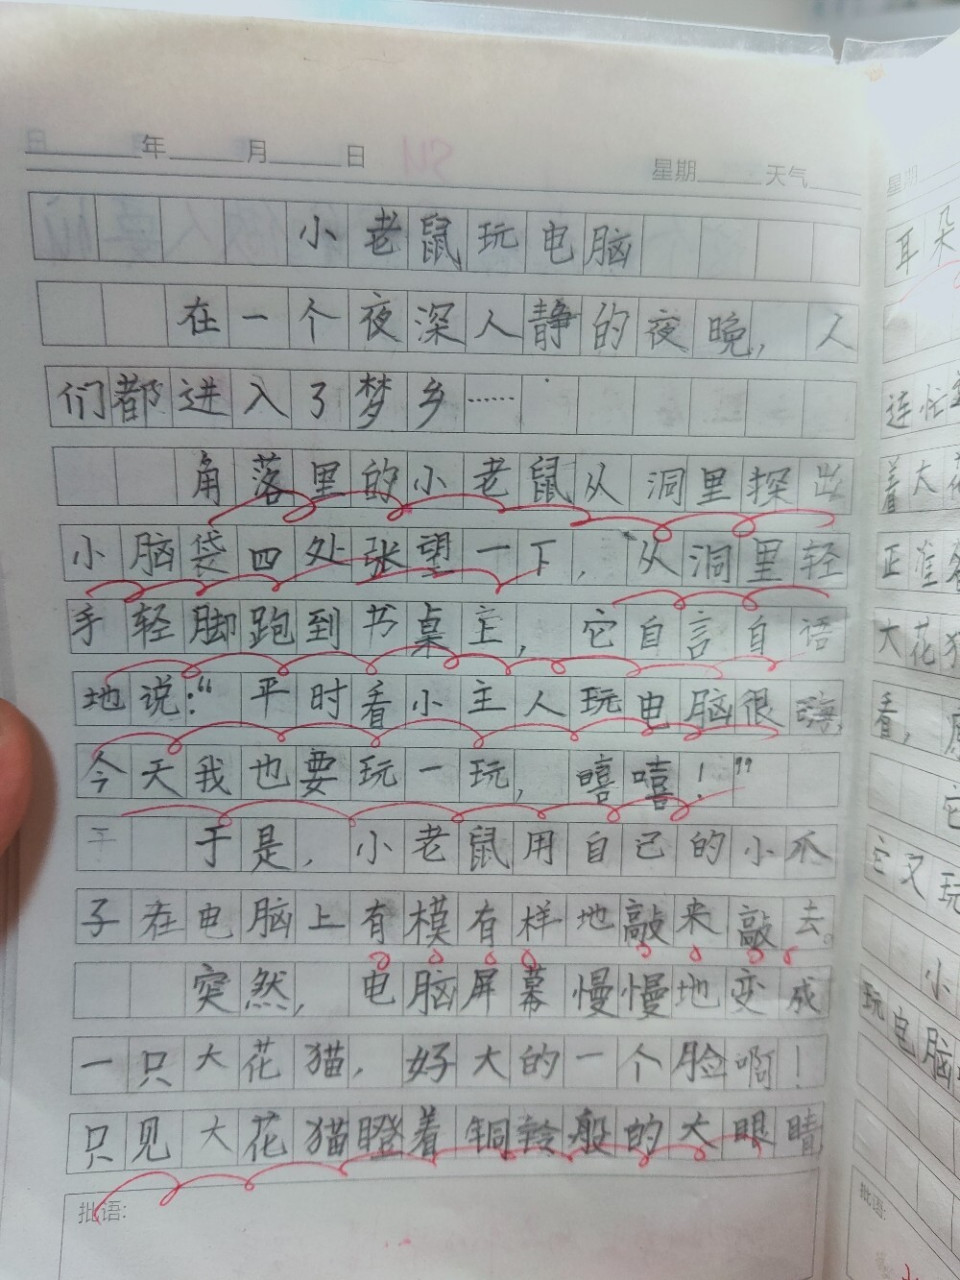 年 月 日 星期 天气
小老鼠玩电脑
在一个夜深人静的夜晚，人
们都进入了梦乡……
角落里的小老鼠从洞里探出
小脑袋四处张望一下，从洞里轻
手轻脚跑到书桌主，它自言自语
地说：“平时看小主人玩电脑很嗨，
今天我也要玩一玩，嘻嘻！”
于是，小老鼠用自己的小爪
子在电脑上有模有样地敲来敲去。
突然，电脑屏幕慢慢地变成
一只大花猫，好大的一个脸啊！
只见大花猫瞪着铜铃般的大眼睛
批语：
星期
耳朵
连忙
着大花
正准备
大花猫
看，
它
它又玩
小
玩电脑
批语：